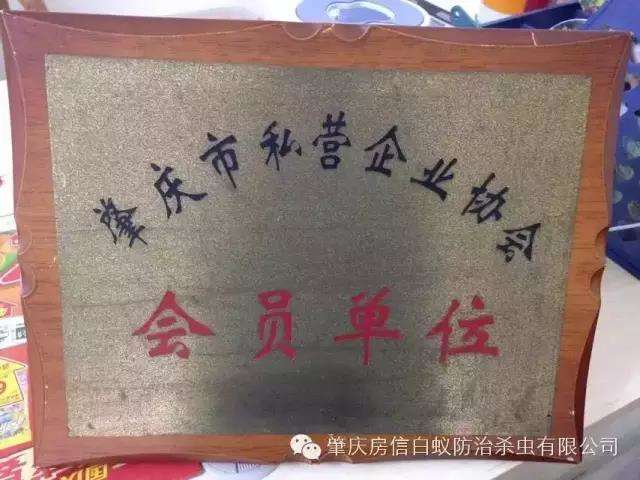 肇庆市私营企业协会
会员单位
肇庆房信白蚁防治杀虫有限公司